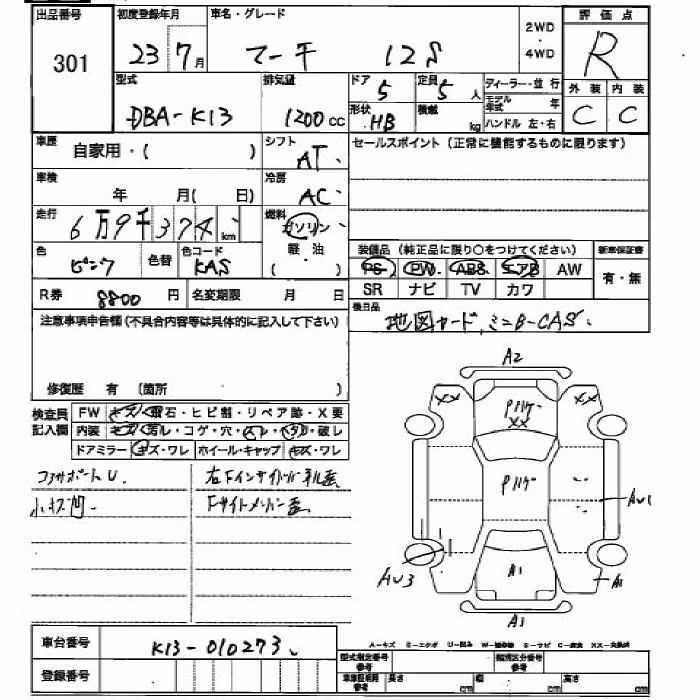 出品番号 初度登録年月 車名・グレード 2WD・4WD 評価点
301 23 7月 マーチ 12S R
型式 排気量 ドア 定員 ディーラー・並行 外装 内装
DBA-K13 1200cc 5 5人 モデル年式 年 C C
形状 積載 ハンドル 左・右
HB kg
車歴 自家用・( ) シフト AT セールスポイント (正常に機能するものに限ります)
車検 年 月( 日) 冷房 AC
走行 6万9千374km 燃料 ガソリン
色 ピンク 色替 色コード KAS 軽油 ( ・ )
装備品 (純正品に限り○をつけてください) 新車保証書
PS PW ABS エアB AW 有・無
SR ナビ TV カワ
R券 8800円 名変期限 月 日
後日品
地図カード、ミニB-CAS
注意事項申告欄(不具合内容等は具体的に記入して下さい)
修復歴 有 (箇所 )
検査員記入欄 FW キズ・飛石・ヒビ割・リペア跡・X要
内装 キズ・汚レ・コゲ・穴・スレ・破レ
ドアミラー キズ・ワレ ホイール・キャップ キズ・ワレ
コアサポートU
小キズ凹
A2
XX XX
Pハゲ
XX
Pハゲ
AU1
AU3
A1
A1
A1
車台番号 K13-010273
登録番号
A-キズ E-エクボ U-凹み W-補修跡 S-サビ C-腐食 XX-交換済
型式指定番号 参考 類別区分番号 参考
車庫証明用 参考 長さ cm 幅 cm 高さ cm